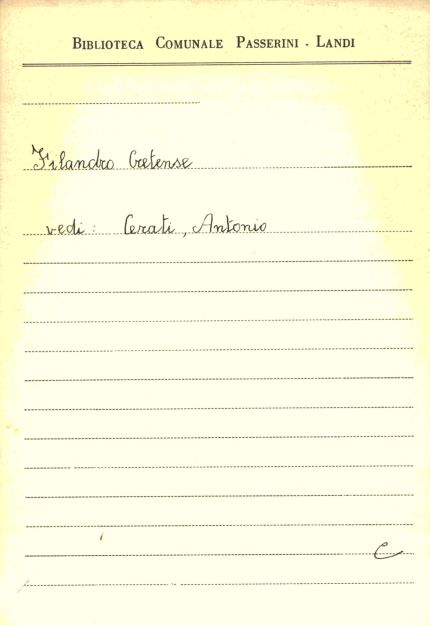 BIBLIOTECA COMUNALE PASSERINI - LANDI
Filandro Cretense
vedi: Cerati, Antonio
C